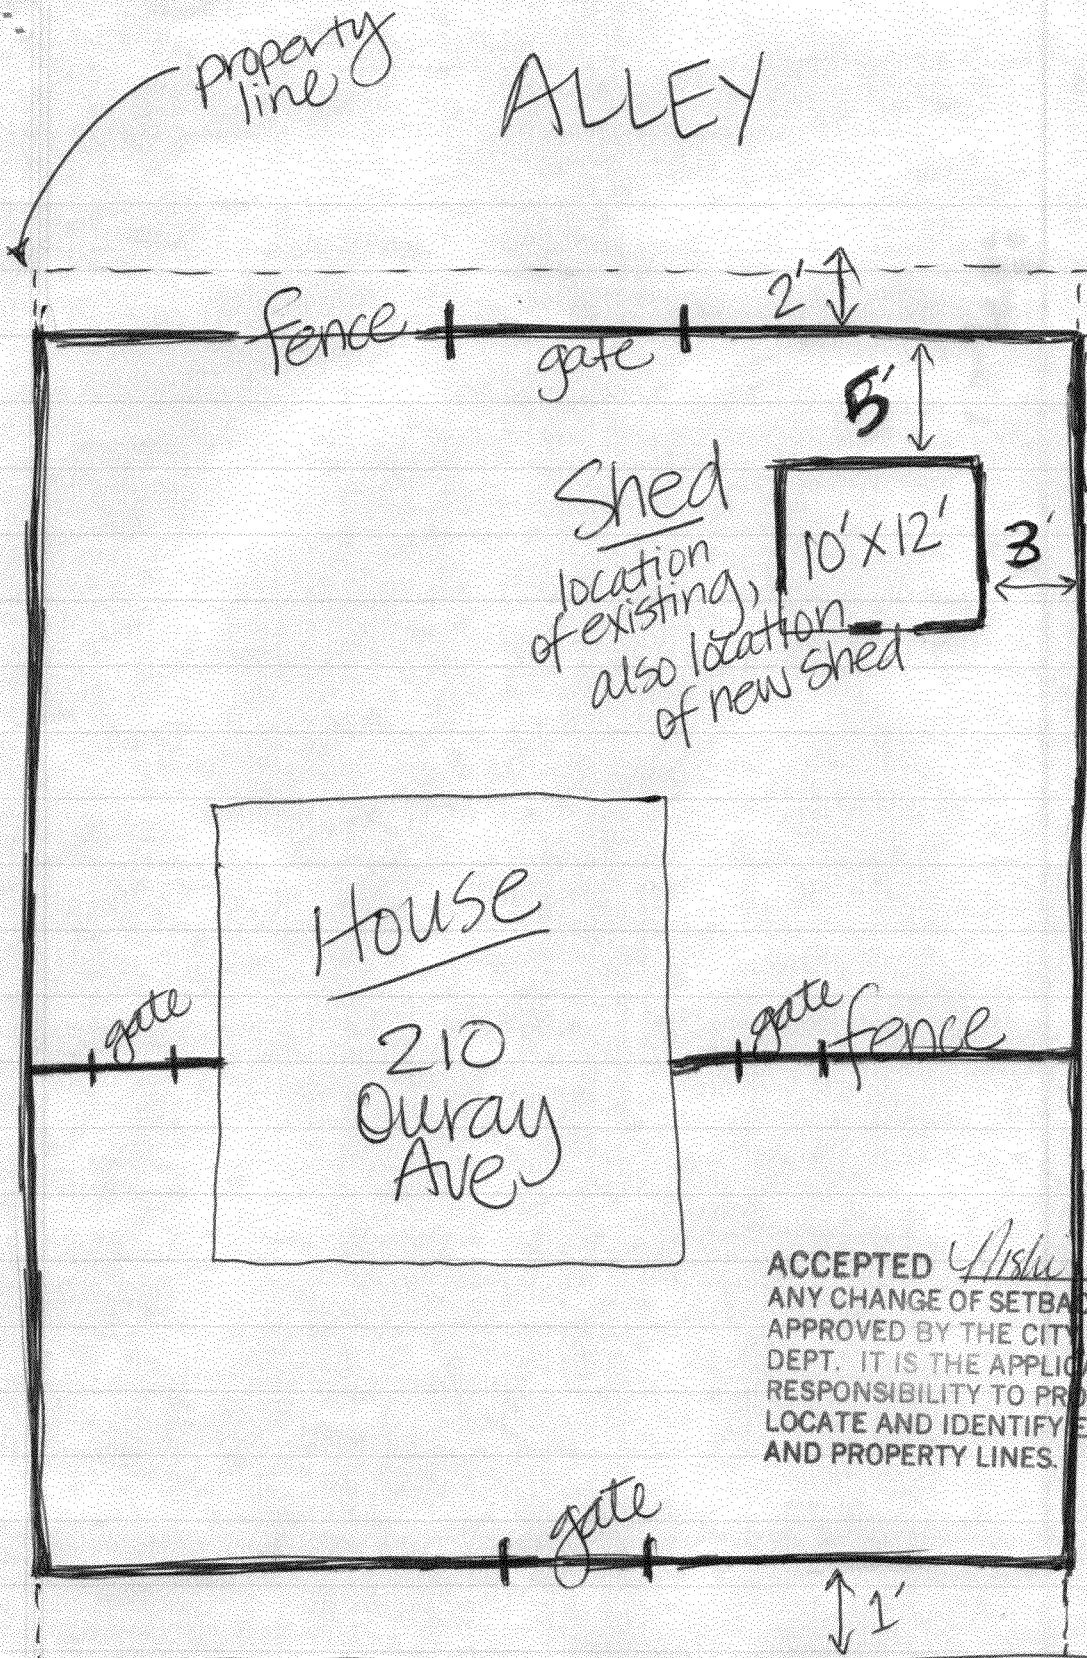 property
line
ALLEY
2'
fence
gate
5'
Shed
10' x 12'
3'
location
of existing,
also location
of new shed
House
210
Ouray
Ave
gate
gate
fence
ACCEPTED
ANY CHANGE OF SETBAC
APPROVED BY THE CITY
DEPT. IT IS THE APPLICA
RESPONSIBILITY TO PRO
LOCATE AND IDENTIFY E
AND PROPERTY LINES.
gate
1'